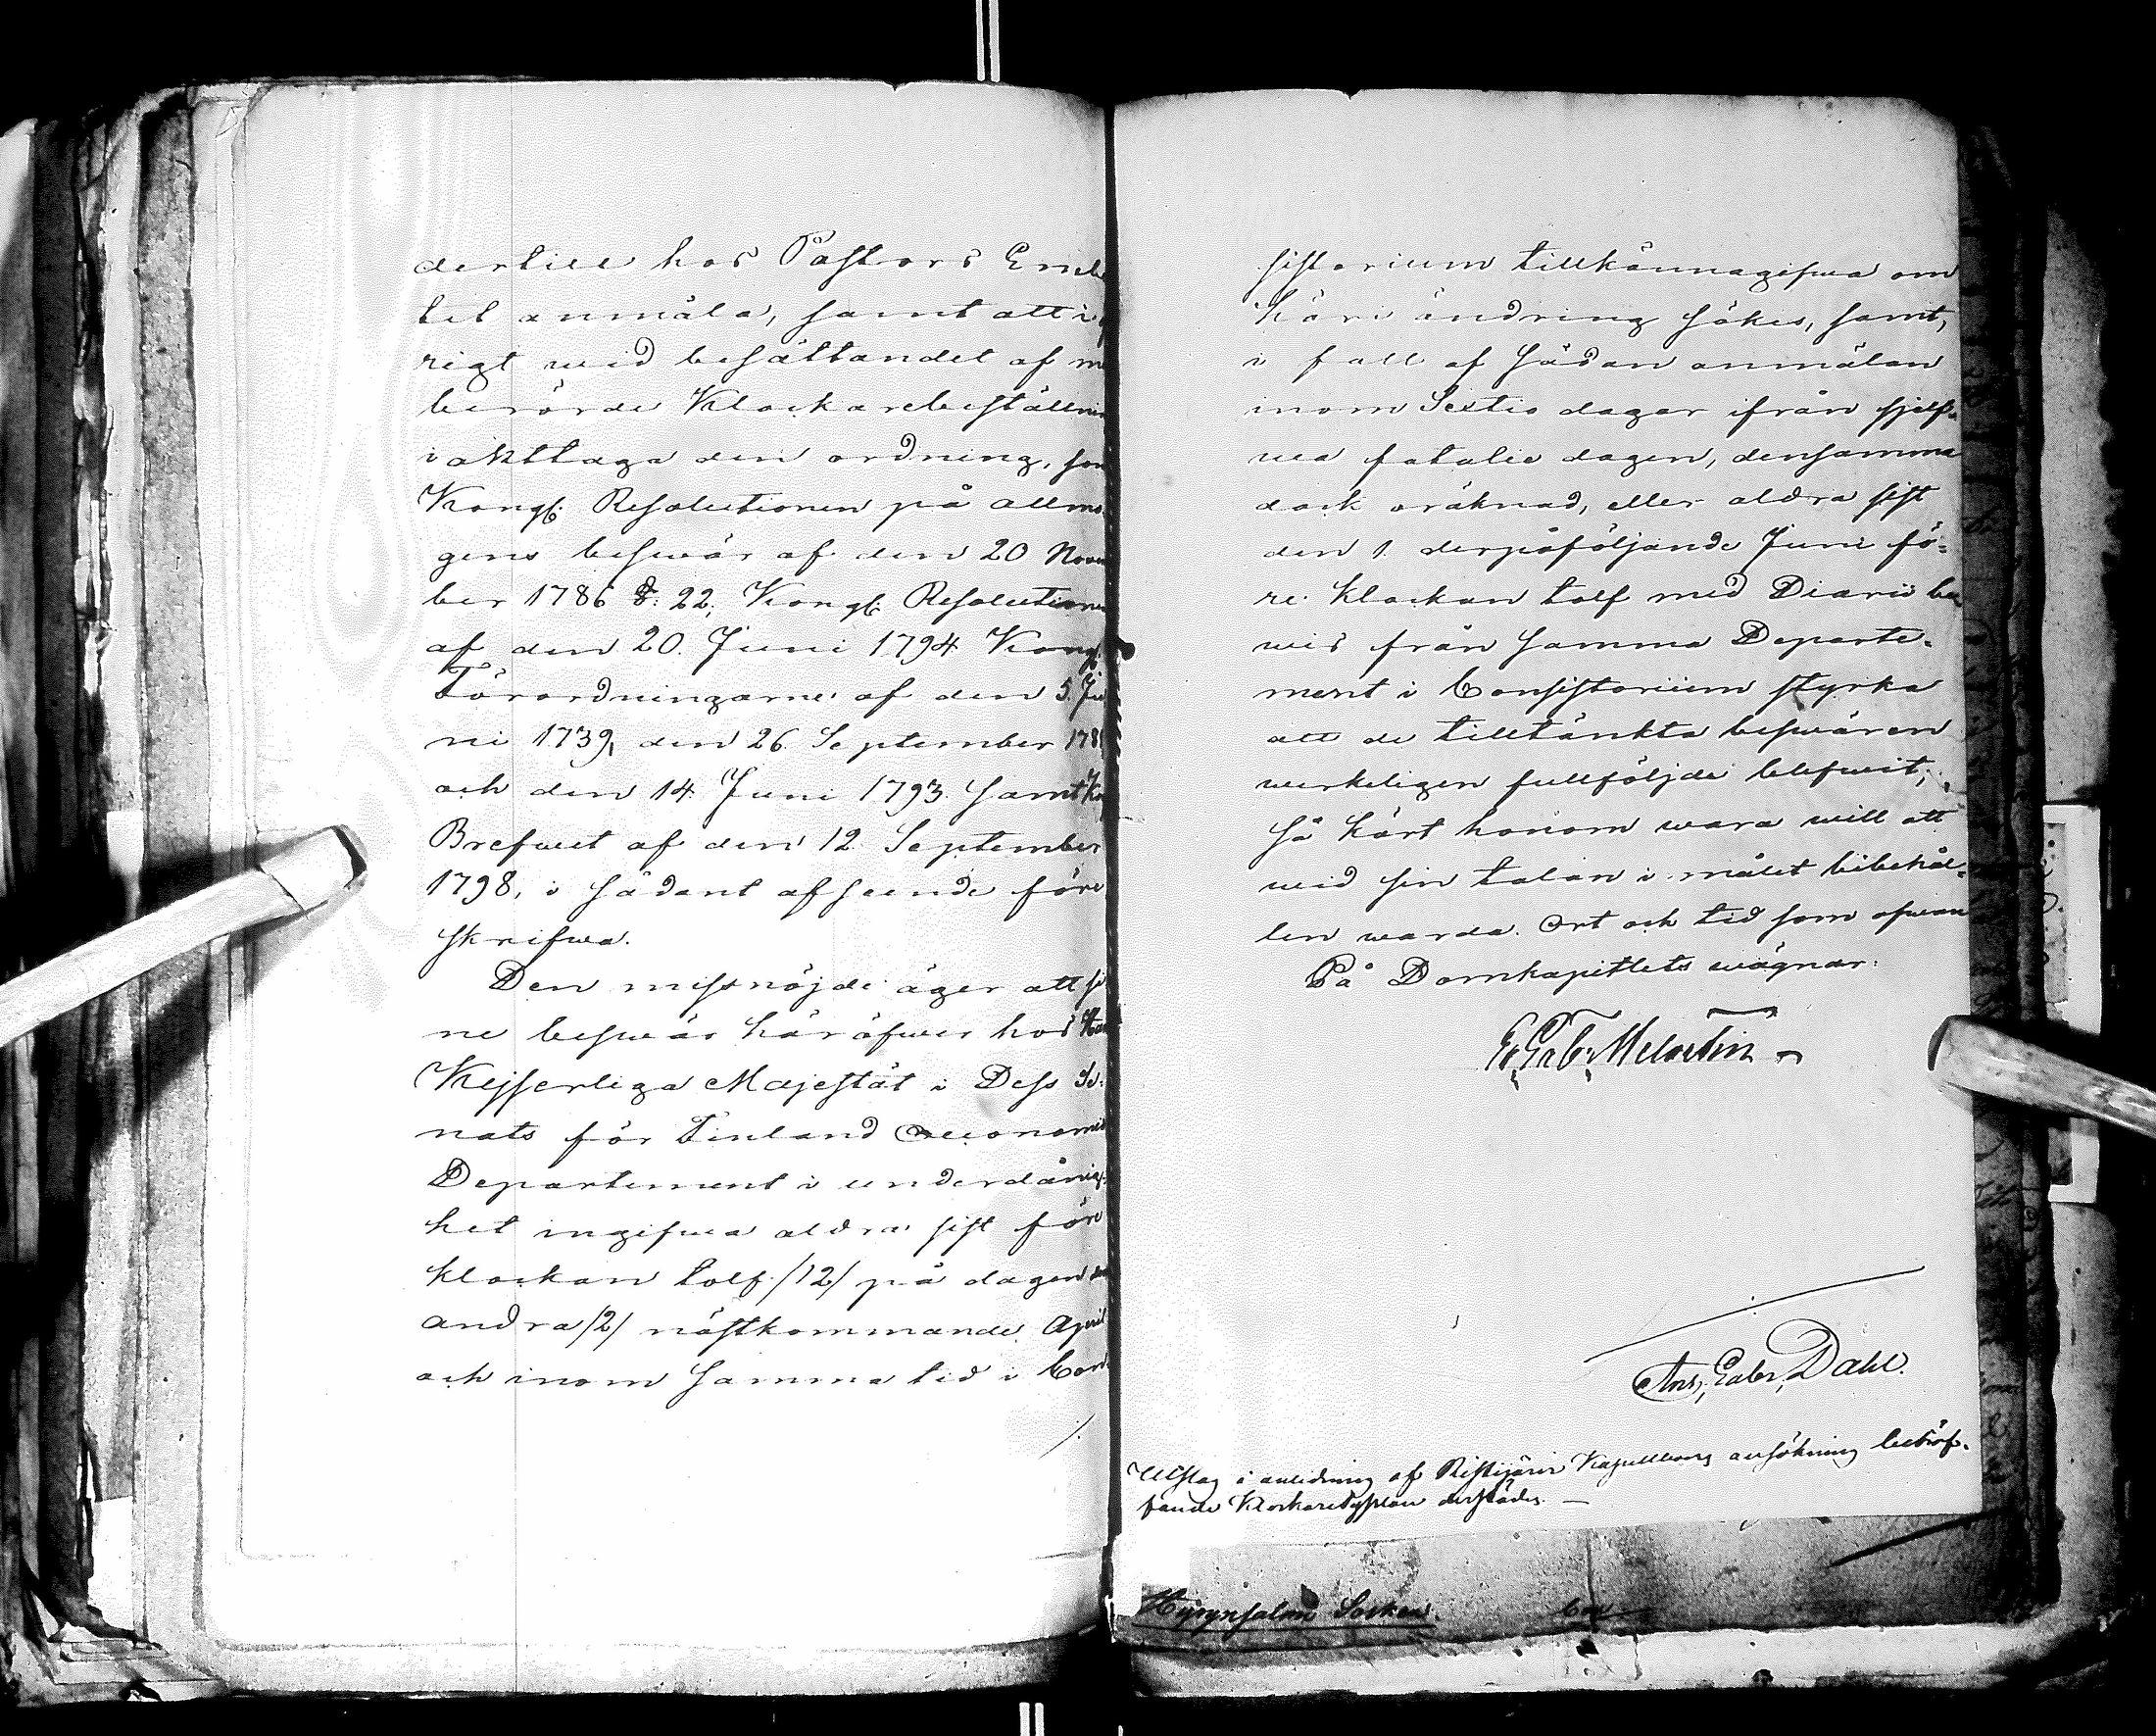 dertill hos Pastors Embe
tet anmäla, samt att i öf
rigt wid besättandet af m
berörde Klockarebeställnin
iakttaga den ordning, som
Kongl. Resolutionen på allmo
gens beswär af den 20 Novem
ber 1786 §: 22, Kongl. Resolutionen
af den 20. Juni 1794 Kongl.
Förordningarne af den 5. Ju
ni 1739, den 26. September 178
och den 14. Juni 1793. samt Kon
Brefwet af den 12 September
1798, i sådant afseende före
skrifwa.
Den missnöjde äger att si
ne beswär häröfwer hos Hans
Kejserliga Majestät i Dess Se-
nats för Finland Oeconomie
Departement i underdånig-
het ingifwa aldra sist före
klockan tolf /12/ på dagen den
andra /2/ nästkommande April
och inom samma tid i Con
/.
sistorium tillkännagifwa om
häri ändring sökes, samt,
i fall af sådan anmälan
inom Sextio dagar ifrån sjelf-
wa fatalie dagen, densamma
dock oräknad, eller aldra sist
den 1. derpåföljande Juni fö-
re klockan tolf med Diarii be
wis från samma Departe-
ment i Consistorium styrka
att de tilltänkta beswären
werkeligen fullföljde blefwit;
så kärt honom wara will att
wid sin talan i målet bibehål-
len warda. Ort och tid som ofwan
På Domkapitlets wägnar:
E. Gab. Melartin
Ans. Gabr. Dahl.
Utslag i anledning af Ristijärvi Kapellboers ansökning beträf-
fande Klockaresysslan derstädes. —
Hyrynsalmi Socken.